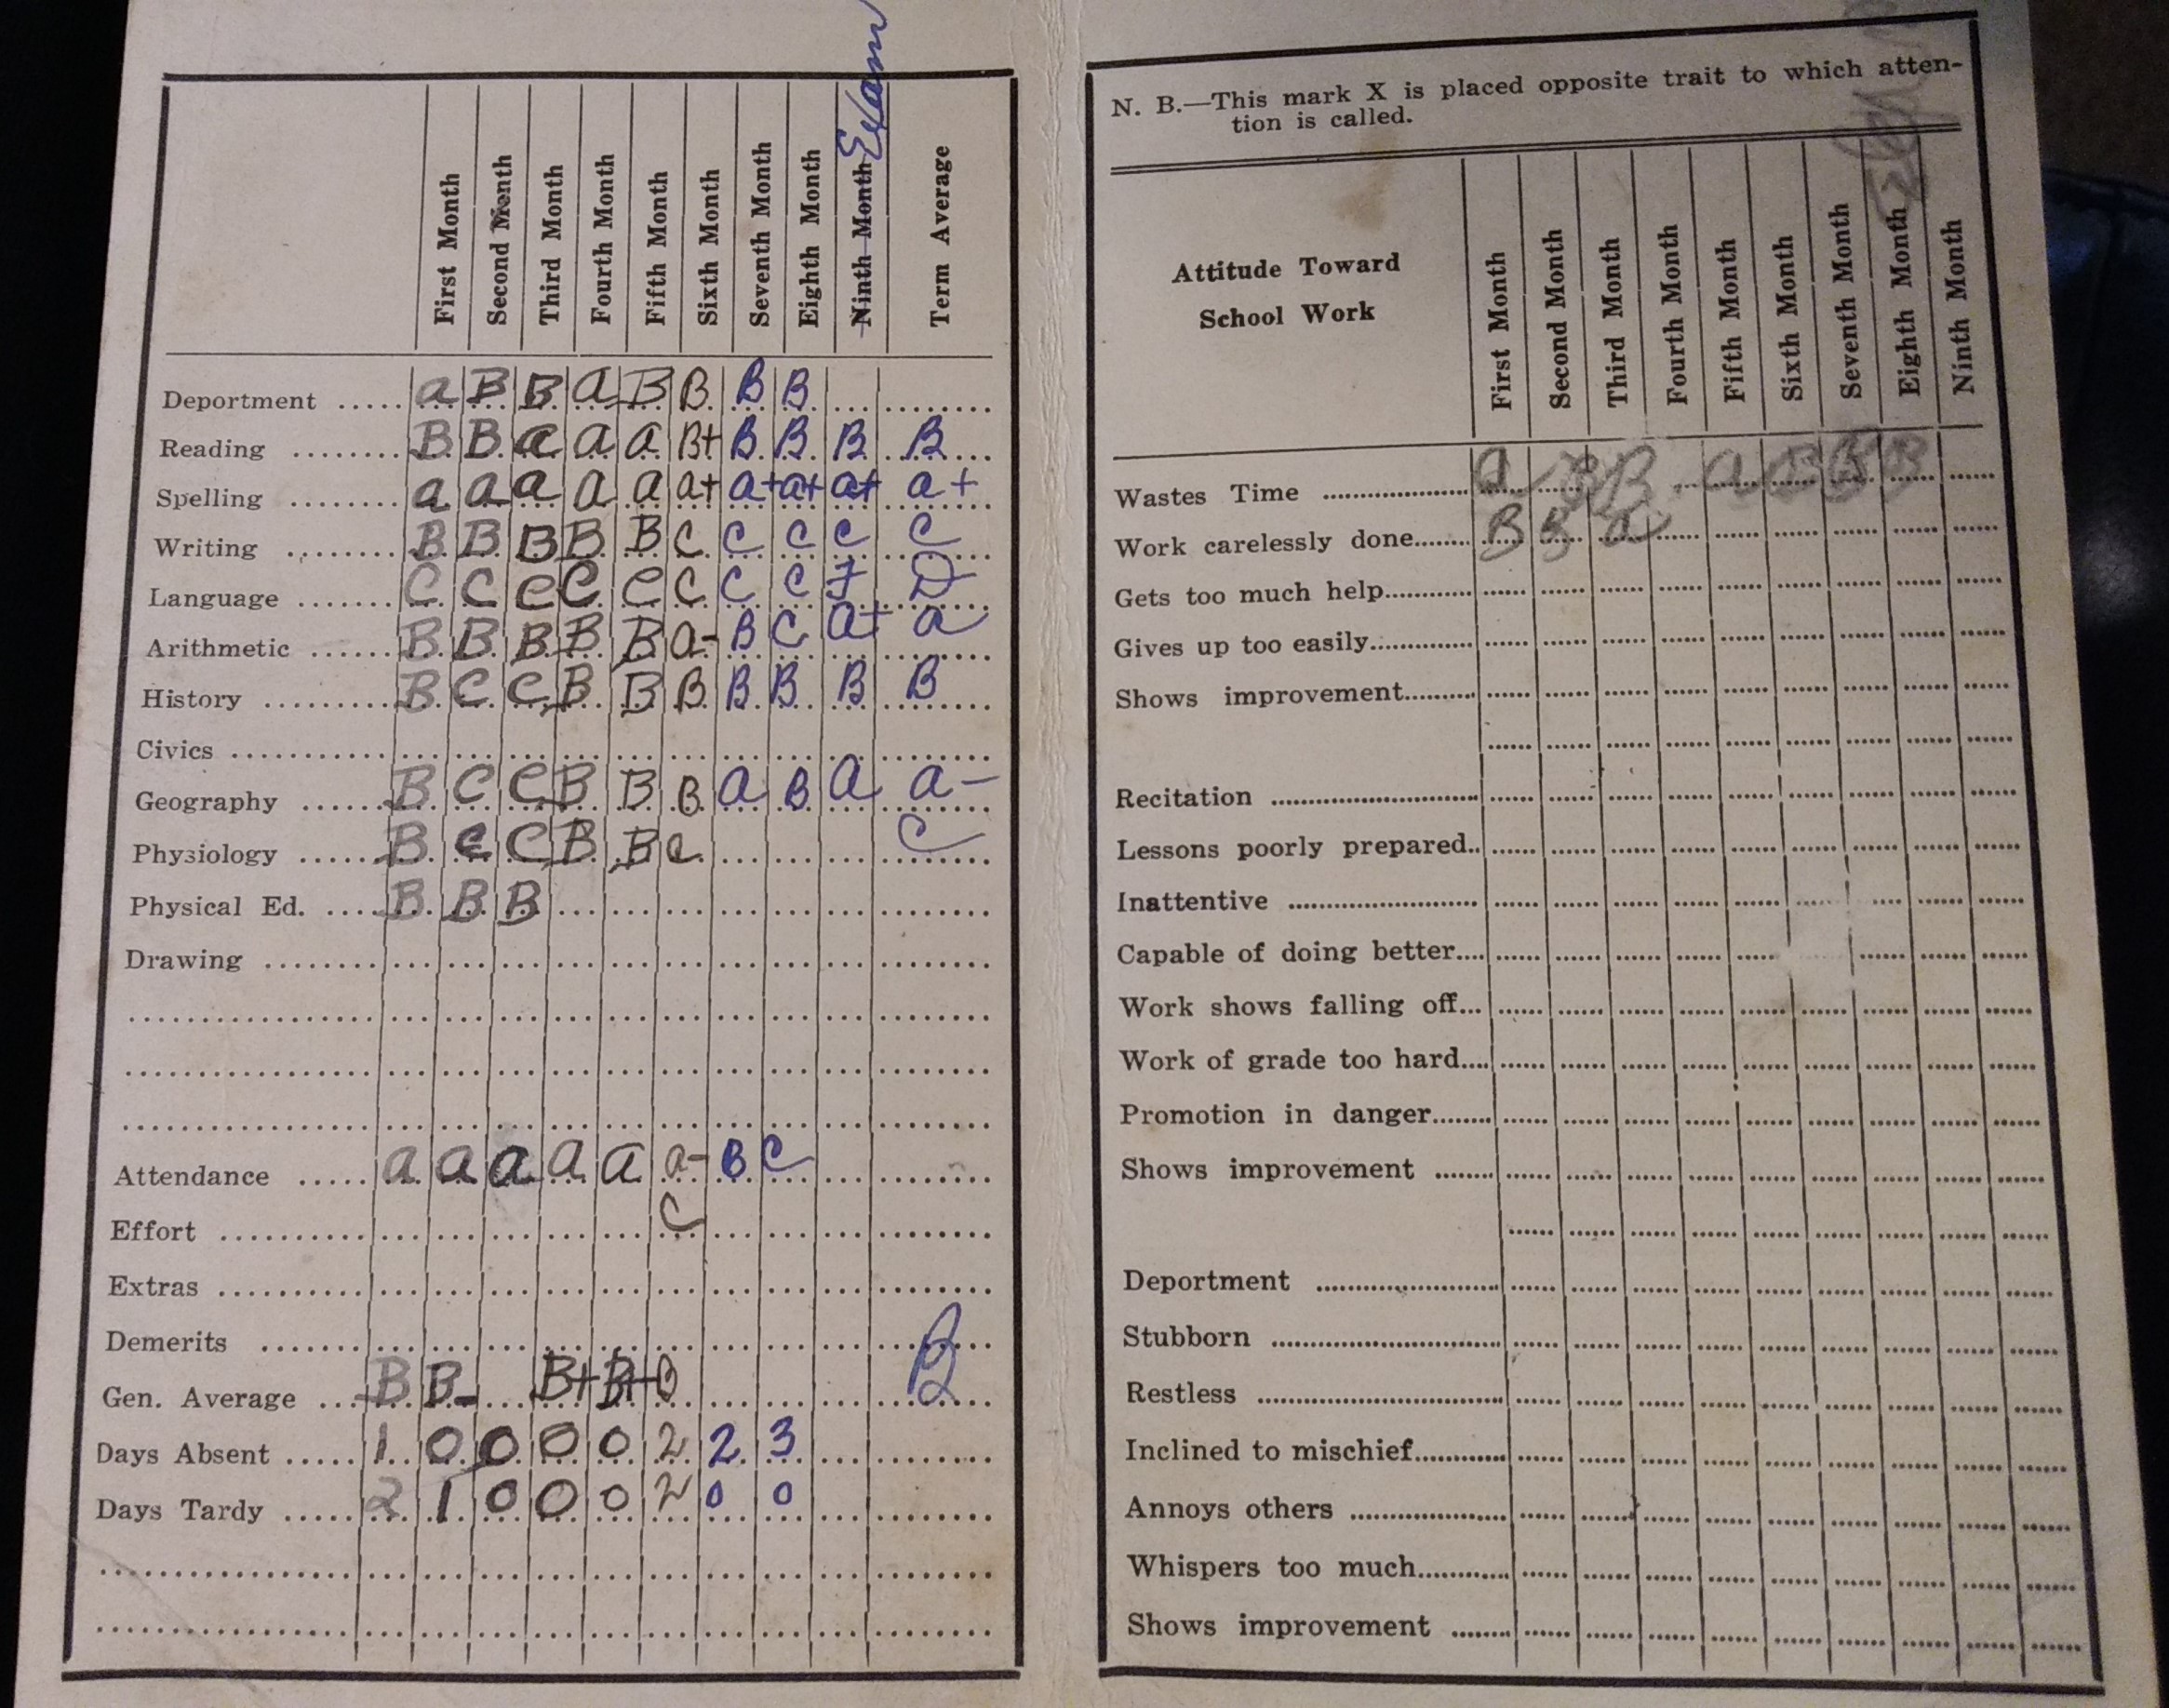 Exam
First Month Second Month Third Month Fourth Month Fifth Month Sixth Month Seventh Month Eighth Month Ninth Month Term Average
Deportment ..... a B B a B B B B
Reading ........ B B a a a B+ B B B B
Spelling ........ a a a a a a+ a+ a+ a+ a+
Writing ........ B B B B B C C C C C
Language ....... C C C C C C C C F D
Arithmetic ...... B B B B B a- B C a+ a
History ......... B C C B B B B B B B
Civics ..........
Geography ...... B C C B B B a B a a-
Physiology ...... B C C B B C C
Physical Ed. .... B B B
Drawing ........
Attendance ..... a a a a a a- B C
Effort .......... C
Extras ..........
Demerits ......
Gen. Average ... B B- B+ B+ B B
Days Absent ..... 1 0 0 0 0 2 2 3
Days Tardy ..... 2 1 0 0 0 2 0 0
N. B.—This mark X is placed opposite trait to which atten-
tion is called.
Attitude Toward
School Work
First Month Second Month Third Month Fourth Month Fifth Month Sixth Month Seventh Month Eighth Month Ninth Month
Wastes Time ........ a B B a B B B
Work carelessly done........ B B a
Gets too much help............
Gives up too easily..............
Shows improvement..........
Recitation ........................
Lessons poorly prepared..
Inattentive ......................
Capable of doing better....
Work shows falling off...
Work of grade too hard....
Promotion in danger........
Shows improvement ........
Deportment ......................
Stubborn ..........................
Restless ............................
Inclined to mischief............
Annoys others ..................
Whispers too much............
Shows improvement ........